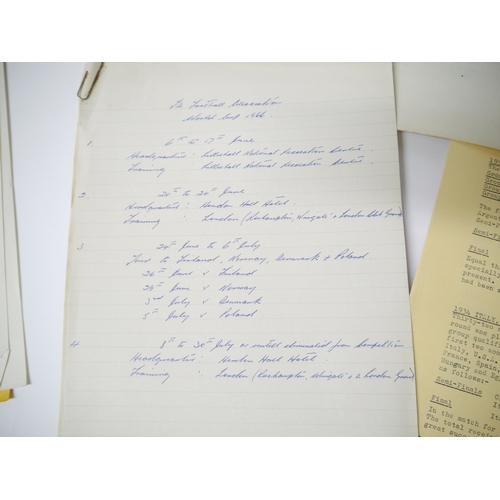 The Football Association
World Cup 1966
1. 6th to 17th June
Headquarters: Lilleshall National Recreation Centre.
Training: Lilleshall National Recreation Centre.
2. 20th to 24th June
Headquarters: Hendon Hall Hotel.
Training: London (Roehampton, Wingate + London Club Ground)
3. 24th June to 6th July
Tour to Finland, Norway, Denmark + Poland.
26th June v Finland
29th June v Norway
3rd July v Denmark
5th July v Poland
4. 8th to 30th July or until eliminated from Competition
Headquarters: Hendon Hall Hotel
Training: London (Roehampton, Wingate + London
Semi-Fin
Final
Equal th
specially
present.
had been
1934 ITALY.
Thirty-two
round was pl
group qualif
first two
Italy, U.S.
France, Spain,
Hungary and
as follows:-
Semi-Finals
Final
In the match for
The total recei
great succ